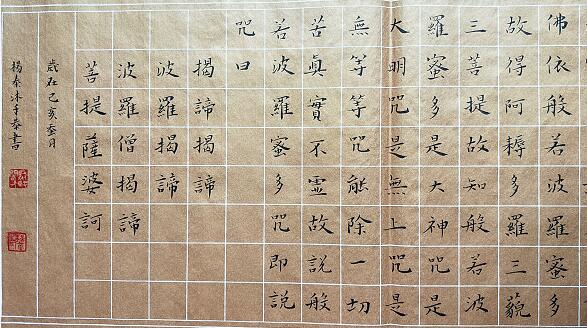 佛依般若波羅蜜多
故得阿耨多羅三藐
三菩提故知般若波
羅蜜多是大神咒是
大明咒是無上咒是
無等等咒能除一切
苦真實不虛故說般
若波羅蜜多咒即說
咒曰
揭諦揭諦
波羅揭諦
波羅僧揭諦
菩提薩婆訶
歲在己亥春月
楊泰沐手恭書